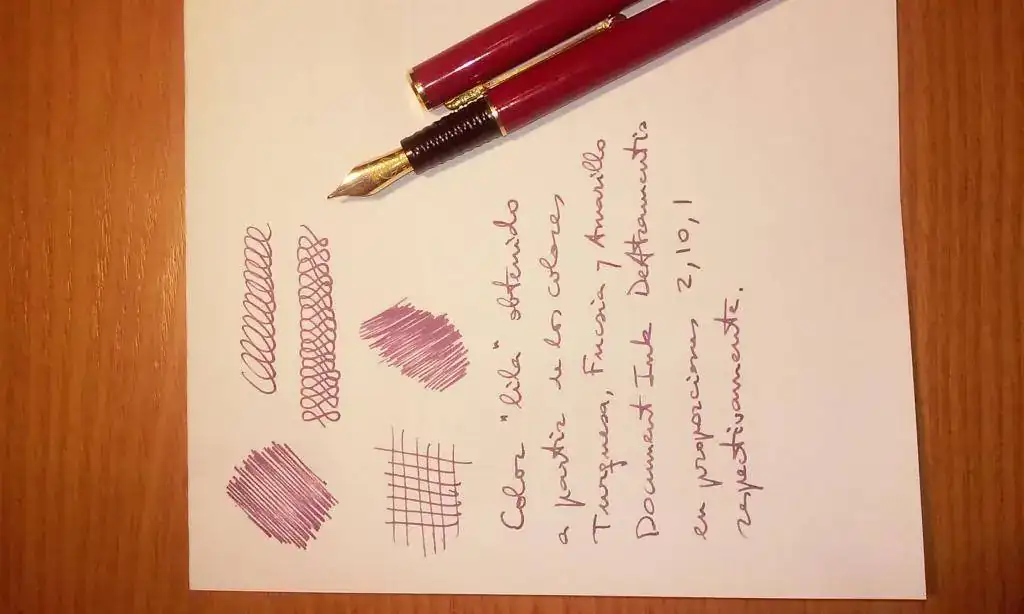 Color "lila" obtenido
a partir de los colores
Turquesa, Fucsia y Amarillo
Document Ink DeAtramentis
en proporciones 2, 10, 1
respectivamente.